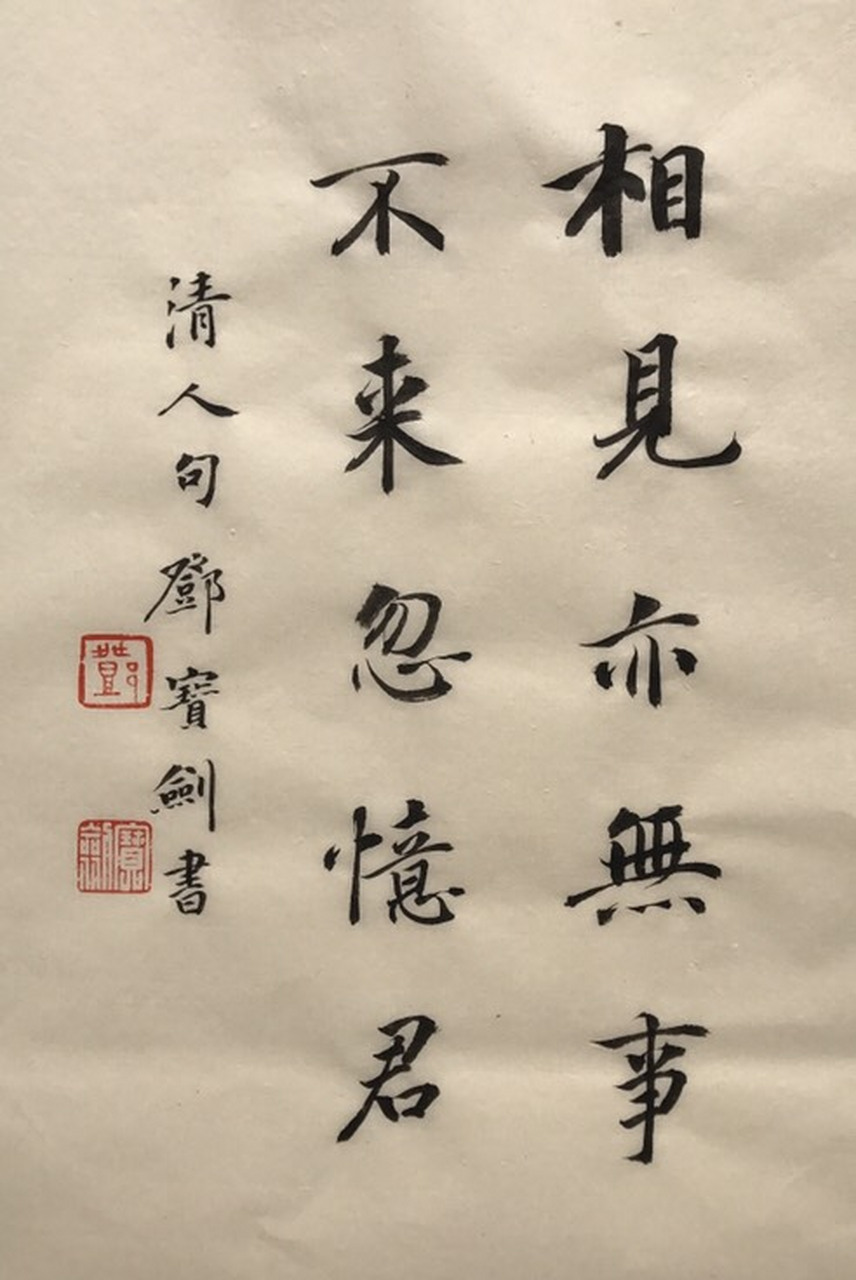 相見亦無事
不来忽憶君
清人句鄧寶劍書
鄧
寶劍